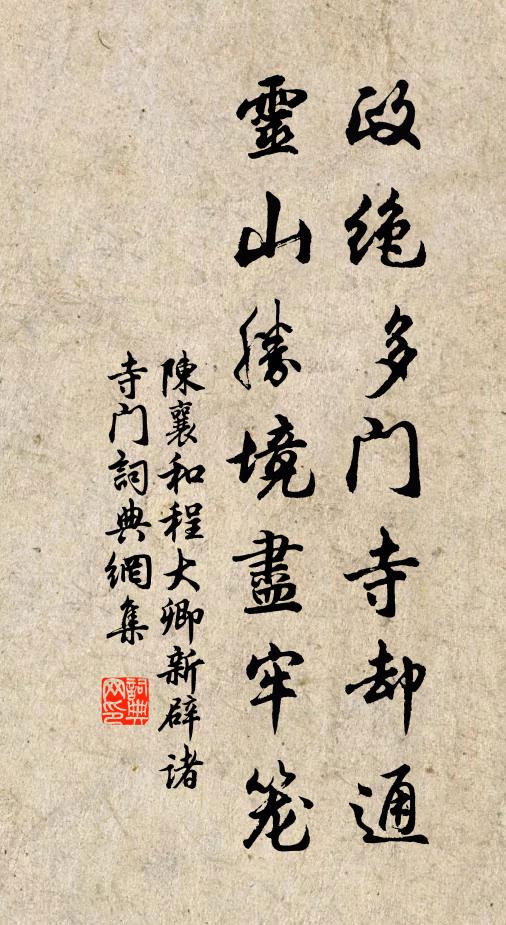 政绝多门寺却通
靈山勝境盡牢笼
陳襄和程大卿新辟诸
寺门詞典網集
詞典
网印